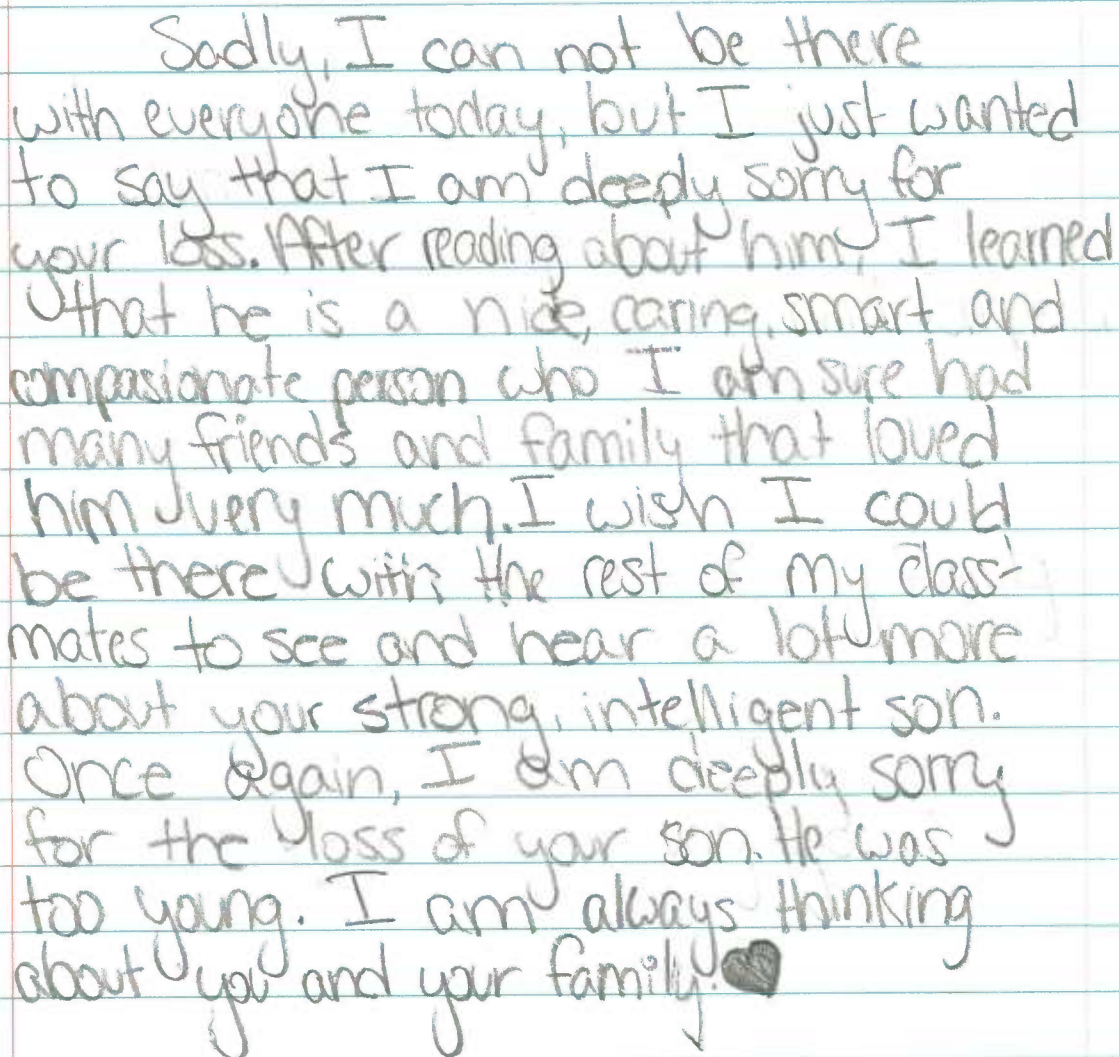 Sadly, I can not be there
with everyone today, but I just wanted
to say that I am deeply sorry for
your loss. After reading about him, I learned
that he is a nice, caring, smart and
compasionate person who I am sure had
many friends and family that loved
him very much. I wish I could
be there with the rest of my class-
mates to see and hear a lot more
about your strong, intelligent son.
Once again, I am deeply sorry
for the loss of your son. He was
too young. I am always thinking
about you and your family.